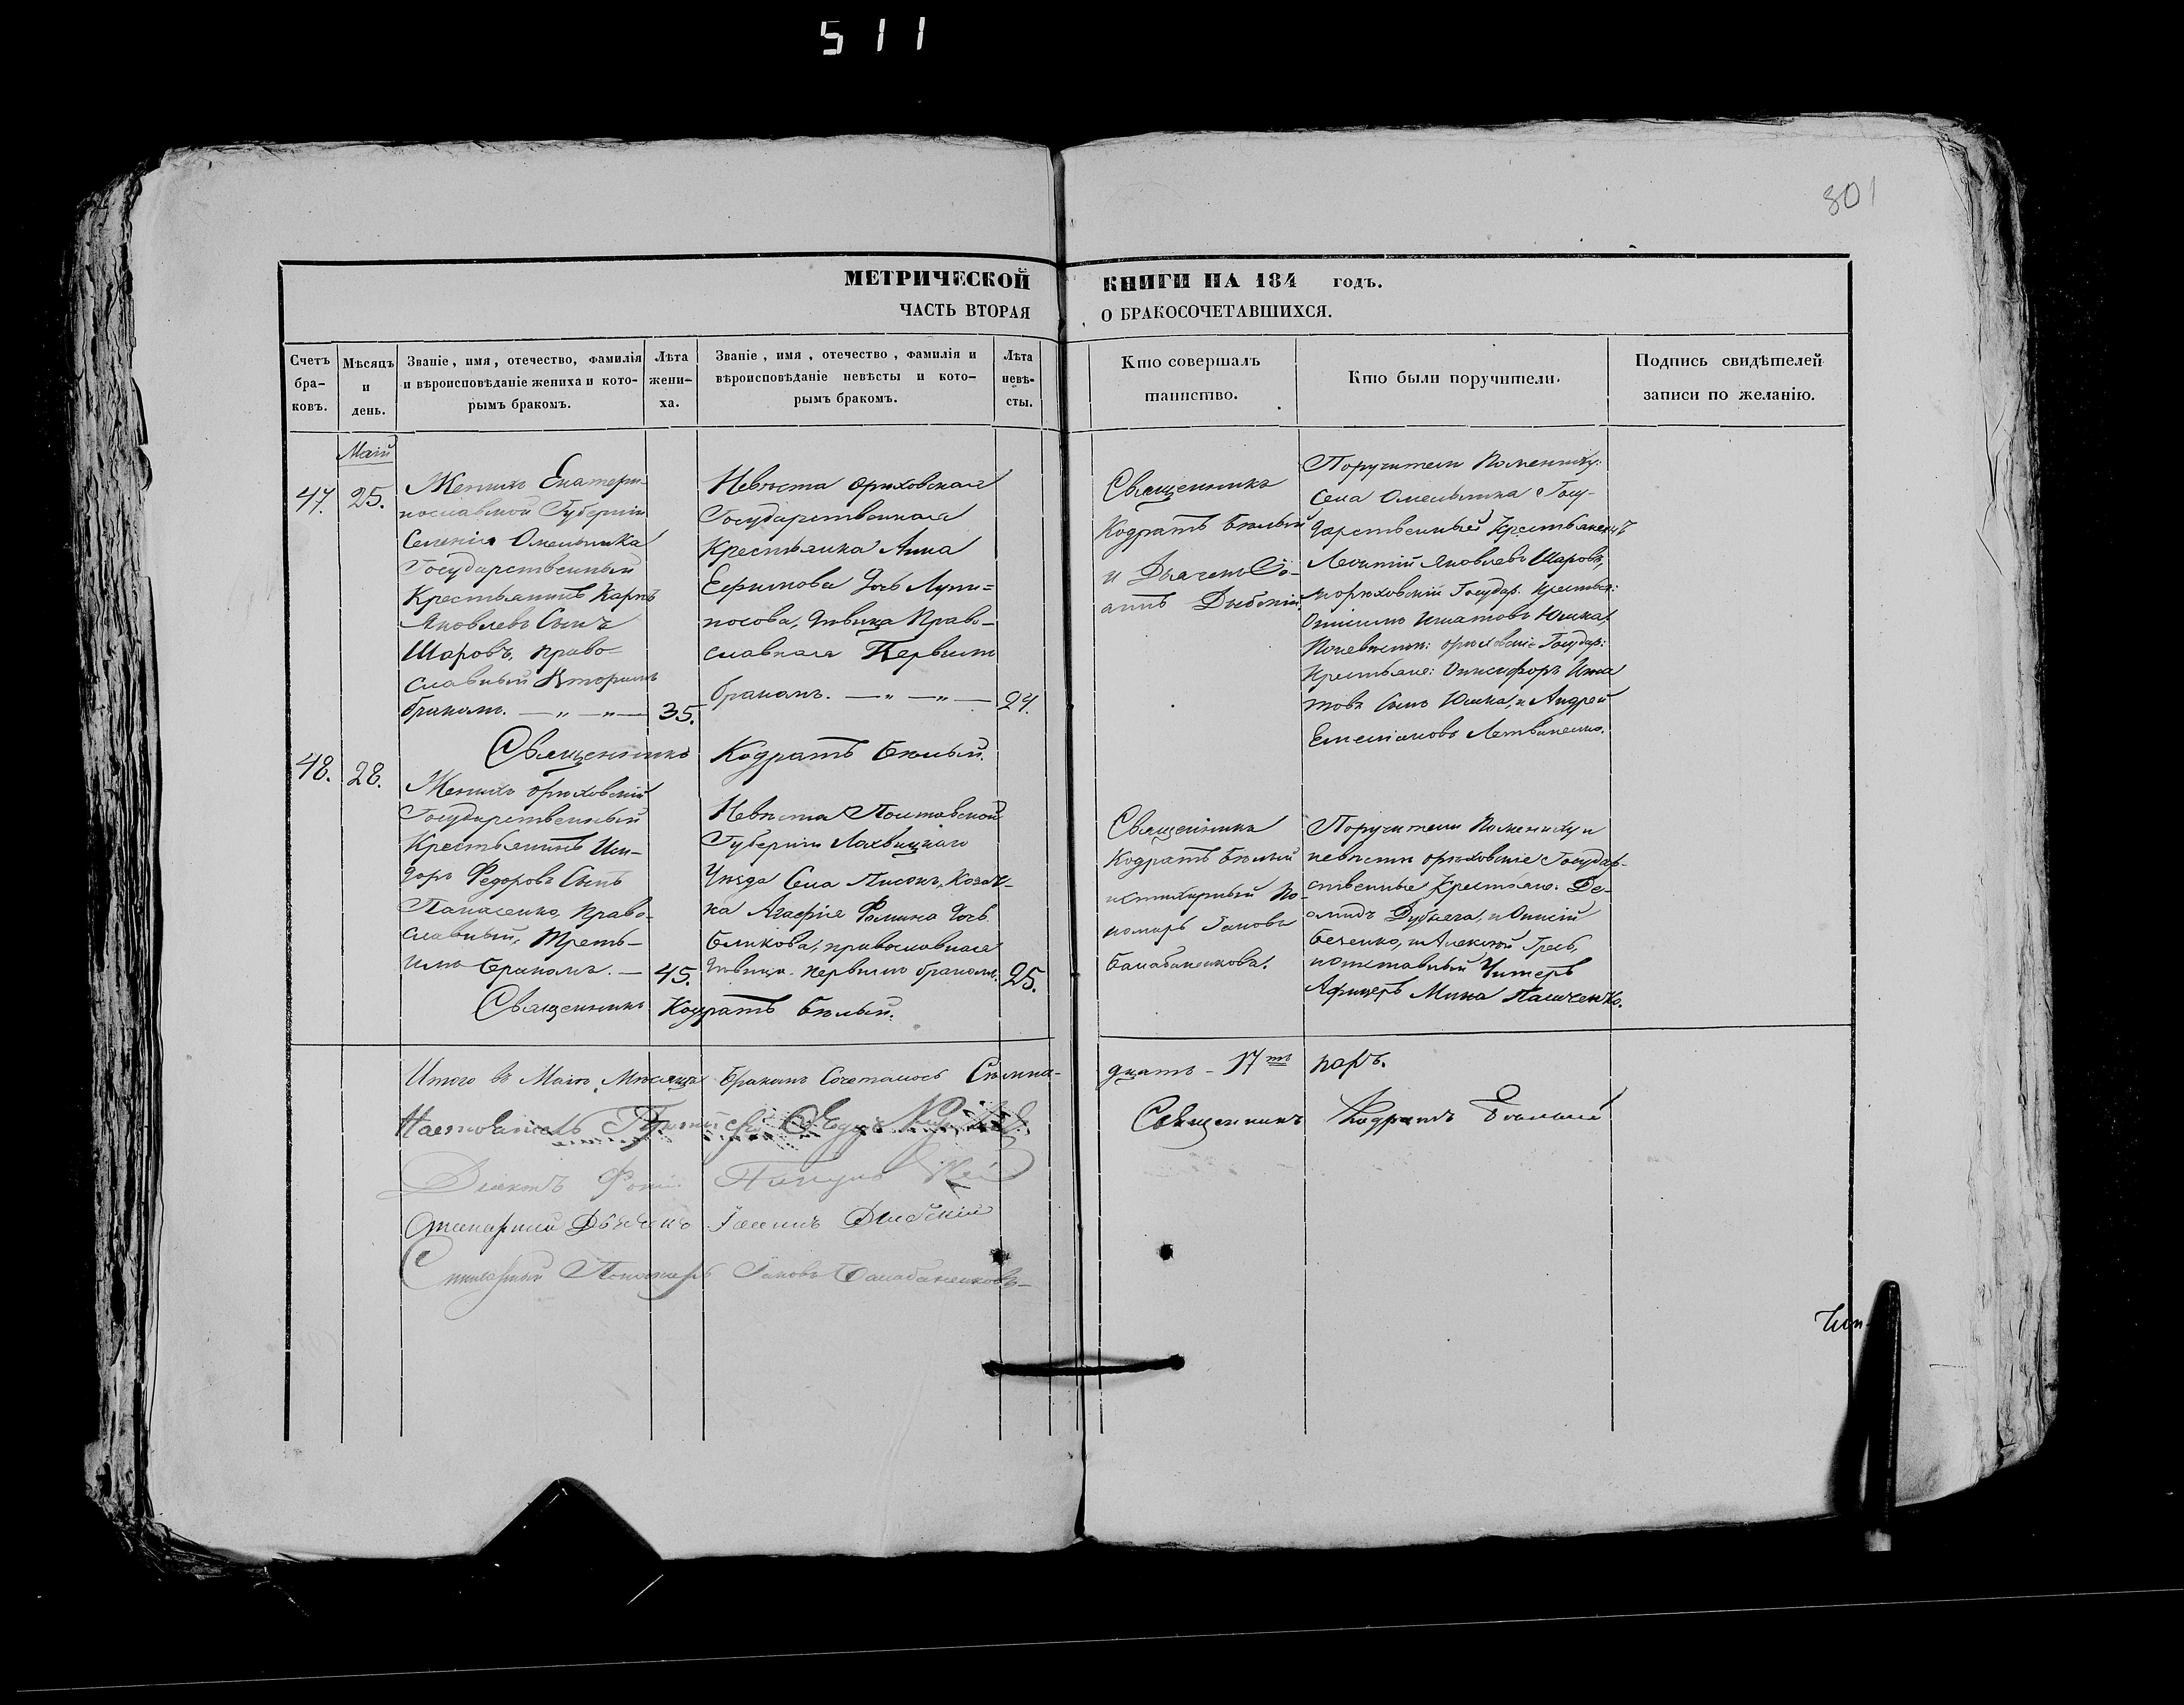 511
801
МЕТРИЧЕСКОЙ КНИГИ НА 184 годъ.
ЧАСТЬ ВТОРАЯ О БРАКОСОЧЕТАВШИХСЯ.
Счетъ
бра-
ковъ.
Мѣсяцъ
и
день.
Званіе, имя, отечество, фамилія
и вѣроисповѣданіе жениха и кото-
рымъ бракомъ.
Лѣта
жени-
ха.
Званіе, имя, отечество, фамилія и
вѣроисповѣданіе невѣсты и кото-
рымъ бракомъ.
Лѣта
невѣ-
сты.
Кто совершалъ
таинство.
Кто были поручители.
Подпись свидѣтелей
записи по желанію.
Маій
47.
25.
Женихъ Екатери-
нославской Губерніи
Селенія Омельника
Государственный
Крестьянинъ Карпъ
Яковлевъ Сынъ
Шаровъ, право-
славный Вторымъ
бракомъ. — „ — „ —
35.
Невѣста орѣховская
Государственная
Крестьянка Анна
Ефимова дочь
дѣвица Право-
славная Первымъ
бракомъ. — „ — „ —
24.
Священникъ
Кодратъ Бѣлый
и Дьячекъ Іо-
аннъ
Поручители По жениху:
Села Омельника Госу-
дарственный Крестьянинъ
Леонтій Яковлевъ Шаровъ,
орѣховскій Государ. Крестьян:
Игнатовъ Юшка,
По невѣстѣ: орѣховскіе Государ:
Крестьяне: Онисифоръ Игна
товъ Сынъ Юшка, и Андрей
Емельяновъ
Священникъ Кодратъ Бѣлый.
48.
28.
Женихъ орѣховскій
Государственный
Крестьянинъ Иси-
доръ Федоровъ Сынъ
Панасенко, Право-
славный, Треть-
имъ Бракомъ. —
45.
Невѣста Полтавской
Губерніи Лохвицкаго
Уѣзда Села Козач-
ка Агафія Фомина дочь
Быкова, православная
дѣвица первымъ бракомъ.
25.
Священникъ
Кодратъ Бѣлый
и стихарный По-
номарь Іаковъ
Балабаненковъ.
Поручители По жениху и
невѣсты орѣховскіе Государ-
ственные Крестьяне: Де-
мидъ и Онисій
и Алексѣй
и отставный Унтеръ
Афицеръ Мина Пащенко.
Священникъ Кодратъ Бѣлый.
Итого въ Маіѣ Мѣсяцѣ Бракомъ Сочеталось Семна-
дцать - 17ть паръ.
Священникъ Кодратъ Бѣлый
Діаконъ
Стихарный Дьячекъ Іоаннъ
Стихарный Пономарь Іаковъ Балабаненковъ